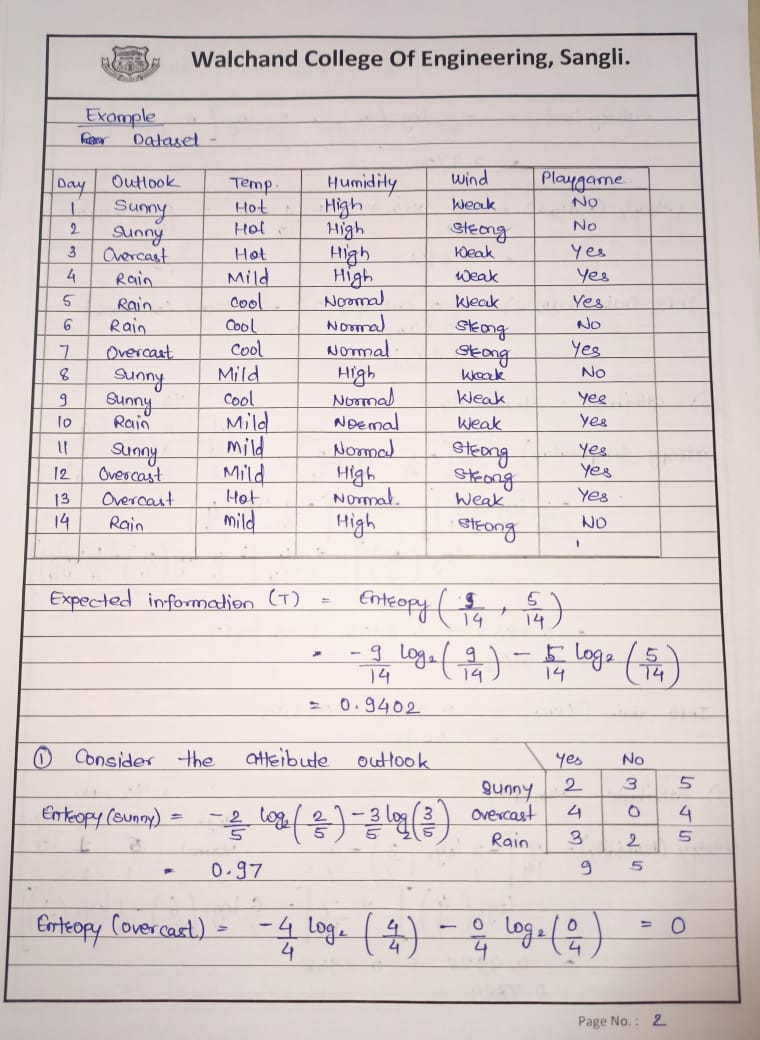 Walchand College Of Engineering, Sangli.
Example
Dataset -
Day Outlook Temp. Humidity Wind Playgame
1 Sunny Hot High Weak No
2 Sunny Hot High Strong No
3 Overcast Hot High Weak Yes
4 Rain Mild High Weak Yes
5 Rain Cool Normal Weak Yes
6 Rain Cool Normal Strong No
7 Overcast Cool Normal Strong Yes
8 Sunny Mild High Weak No
9 Sunny Cool Normal Weak Yes
10 Rain Mild Normal Weak Yes
11 Sunny Mild Normal Strong Yes
12 Overcast Mild High Strong Yes
13 Overcast Hot Normal. Weak Yes
14 Rain Mild High Strong NO
Expected information (T) = Entropy (9/14, 5/14)
= -9/14 log₂(9/14) - 5/14 log₂(5/14)
= 0.9402
① Consider the attribute outlook
Yes No
Sunny 2 3 5
Overcast 4 0 4
Rain 3 2 5
9 5
Entropy (sunny) = -2/5 log₂(2/5) - 3/5 log₂(3/5)
= 0.97
Entropy (overcast) = -4/4 log₂(4/4) - 0/4 log₂(0/4) = 0
Page No. : 2